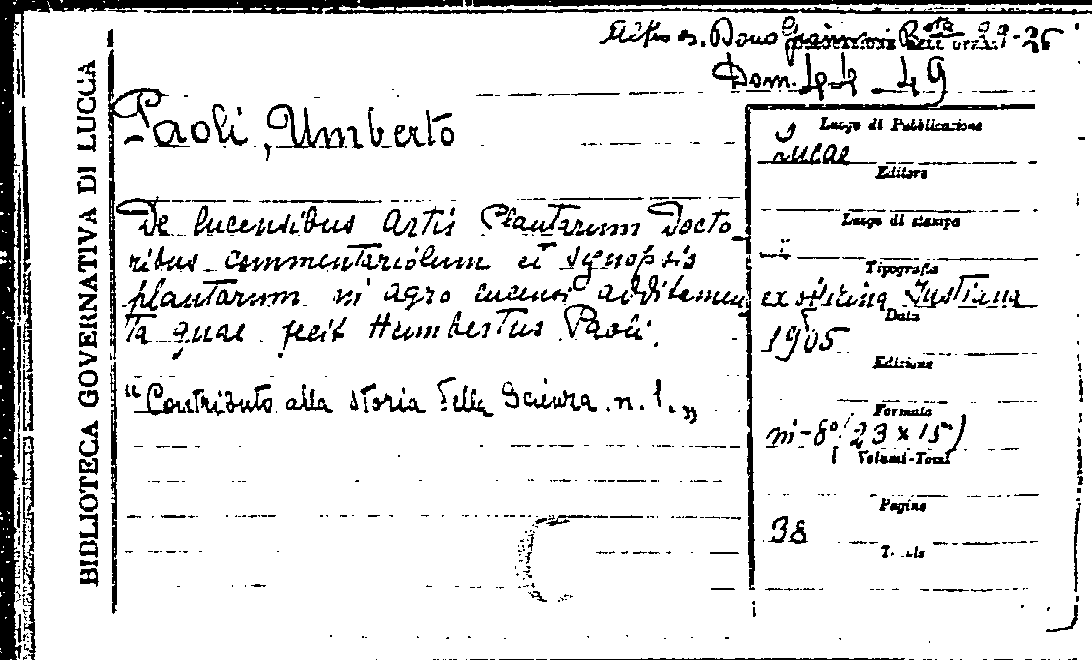 BIBLIOTECA GOVERNATIVA DI LUCCA
Dono
Dom. 4-4-49
Paoli, Umberto
De lucensibus Artis Plantarum Docto
ribus commentariolum et synopsis
plantarum in agro lucensi additamen
ta quae fecit Humbertus Paoli.
"Contributo alla storia della Scienza. n. 1.„
Luogo di Pubblicazione
Lucae
Editore
Luogo di stampa
Tipografia
ex officina Justiana
Data
1905
Edizione
Formato
in-8° (23 x 15)
Volumi-Totali
Pagine
38